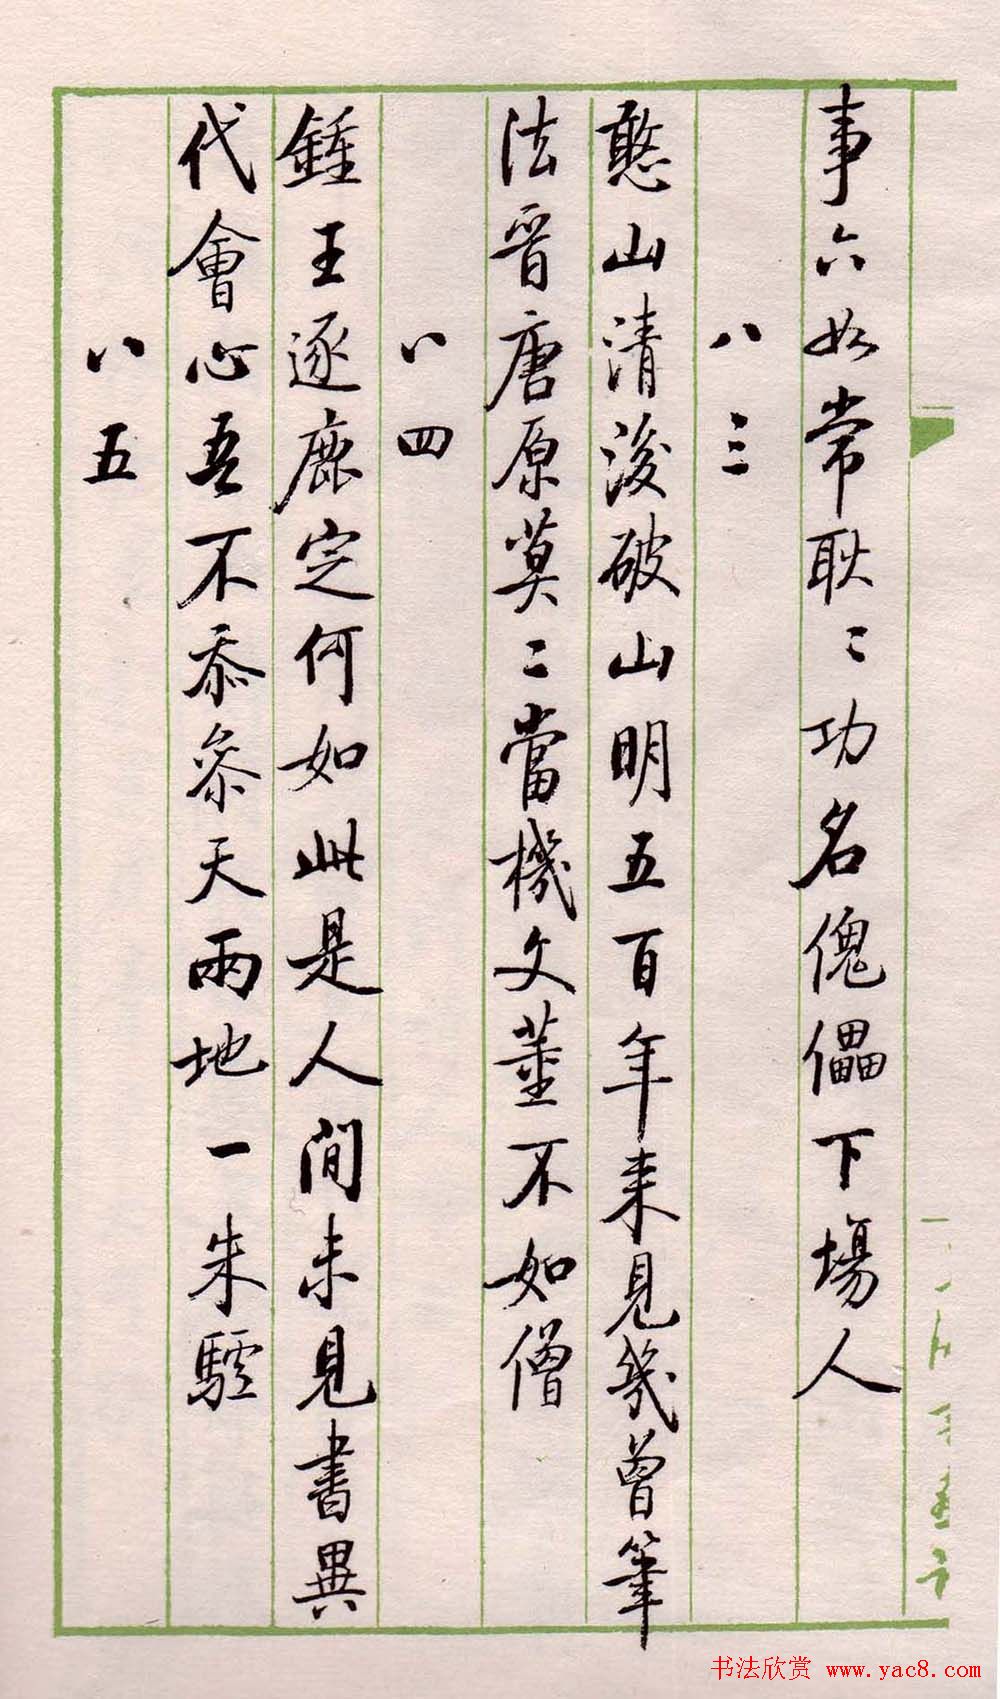 事六如常耿〻功名傀儡下場人
八三
憨山清浚破山明五百年来見幾曾筆
法晋唐原莫二當機文董不如僧
八四
鍾王逐鹿定何如此是人間未見書異
代會心吾不忝參天兩地一朱驢
八五
书法欣赏 www.yac8.com